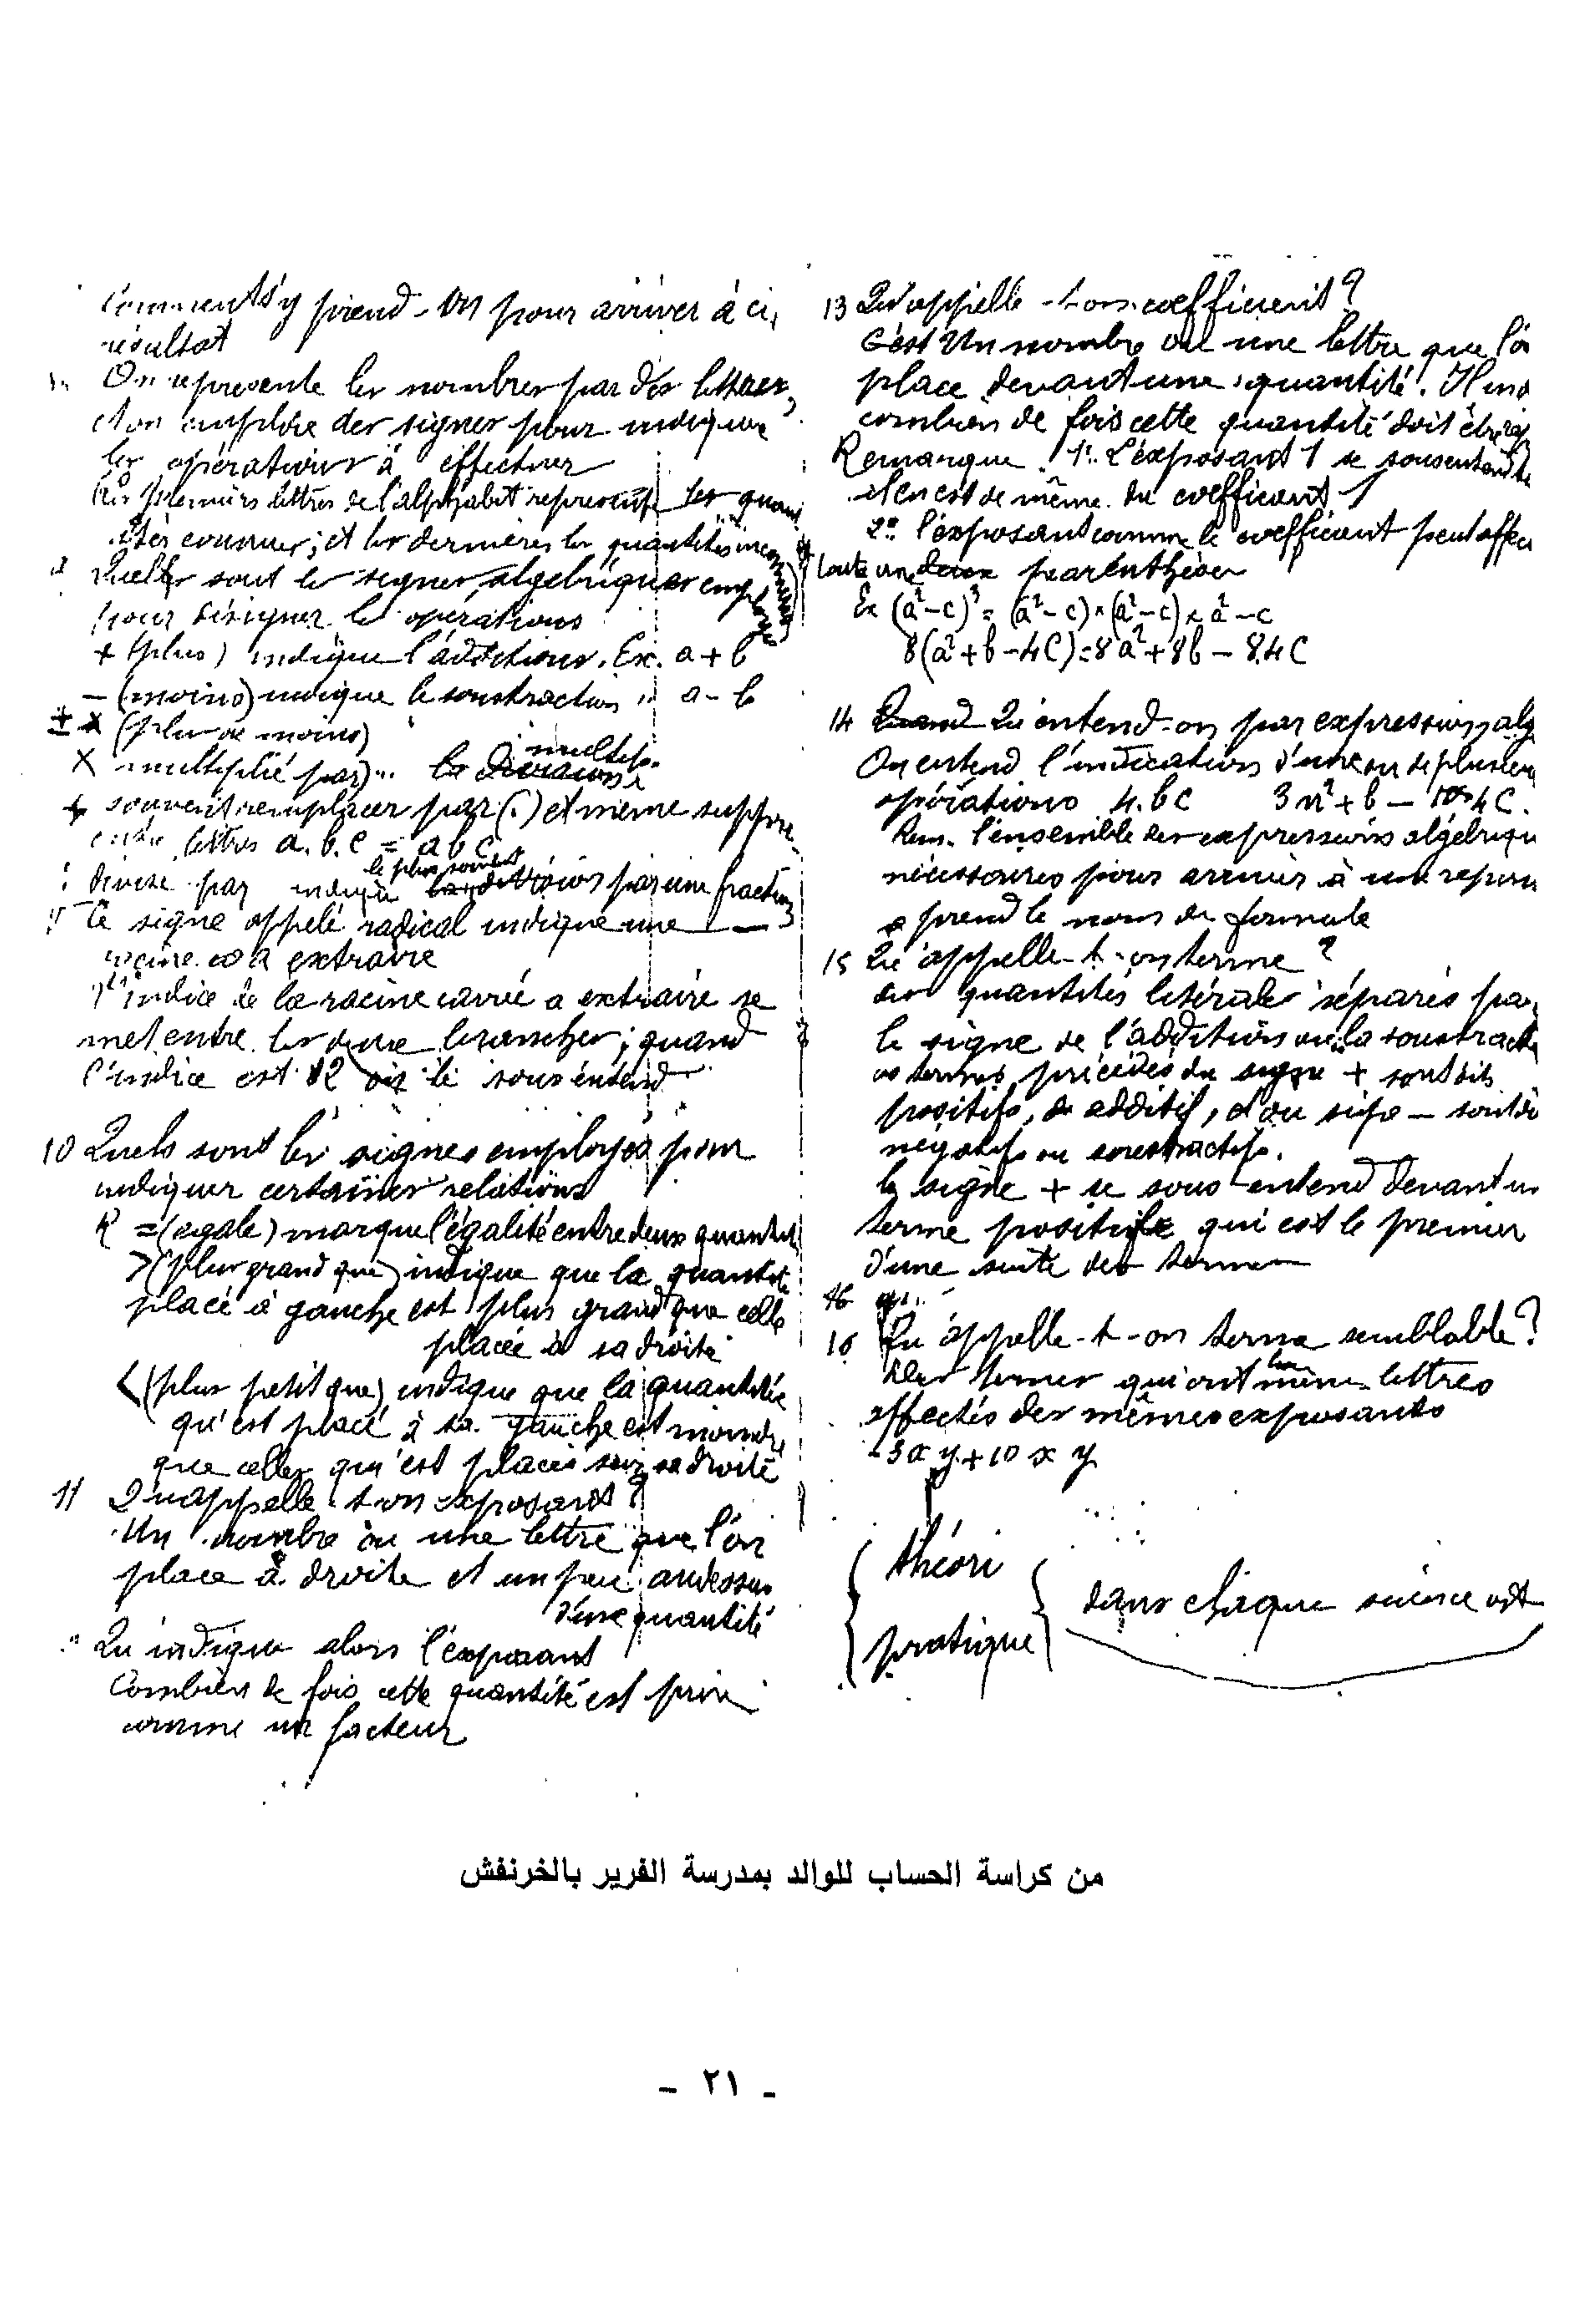 Comment s'y prend-on pour arriver à ce
résultat
On represente les nombres par des lettres,
et on emploie des signes pour indiquer
les opérations à effectuer
Les premiers lettres de l'alphabet represente les quan
tités connues; et les dernières les quantités inconnues
Quelles sont les signes algebriques employés
pour désigner les opérations
+ (plus) indique l'addition. Ex. a + b
– (moins) indique la soustraction " a – b
± (plus ou moins)
X multiplié par) " la multipl.
+ souvent remplacer par (.) et même supprime
entre lettres a. b. c = a b c
le plus souvent
: divisé par indique division par une fraction
Ce signe appelé radical indique une
racine a extraire
l'indice de la racine carré a extraire se
met entre les deux branches; quand
l'indice est 2 on le sous entend
10 Quels sont les signes employés pour
indiquer certaines relations
R = (egale) marque l'égalité entre deux quantité
> (plus grand que) indique que la quantité
placé à gauche est plus grand que celle
placée à sa droite
< (plus petit que) indique que la quantitée
qu'est placé à sa gauche est moindre
que celle qu'est placée sur sa droite
11 Qu'appelle t on exposant ?
Un nombre ou une lettre que l'on
place à droite et un peu audessus
d'une quantité
Qu indique alors l'exposant
Combien de fois cette quantité est prise
comme un facteur
13 Qu'appelle-t on coefficient ?
C'est Un nombre ou une lettre que l'o
place devant une quantité. Il ind
combien de fois cette quantité doit être
Remarque 1º. L'exposant 1 se sousentend
il en est de même du coefficient 1
2º. l'exposant comme le coefficient peut affec
toute une parenthèse
Ex (a²–c)³ = (a²–c) × (a²–c) × a²–c
8(a²+b–4C) = 8a²+8b – 8.4C
14 Qu'entend-on par expression alg
On entend l'indication d'une ou de plusieur
opérations 4. b c 3 n² + b – 10 4 C.
Rem. l'ensemble des expressions algébriqu
nécessaires pour arriver à une repon
prend le nom de formule
15 Qu'appelle-t-on terme ?
des quantités litérales séparés par
le signe de l'addition ou la soustract
les termes précédés du signe + sont dits
positifs, additif, – sont di
négatifs ou soustractifs.
le signe + se sous entend devant un
terme positif qui est le premier
d'une suite des termes
16 Qu'appelle-t-on terme semblable ?
Des termes qui ont les même lettres
affectés des mêmes exposants
– 3 x y + 10 x y
théori
pratique
dans chaque science
من كراسة الحساب للوالد بمدرسة الفرير بالخرنفش
- ٢١ -